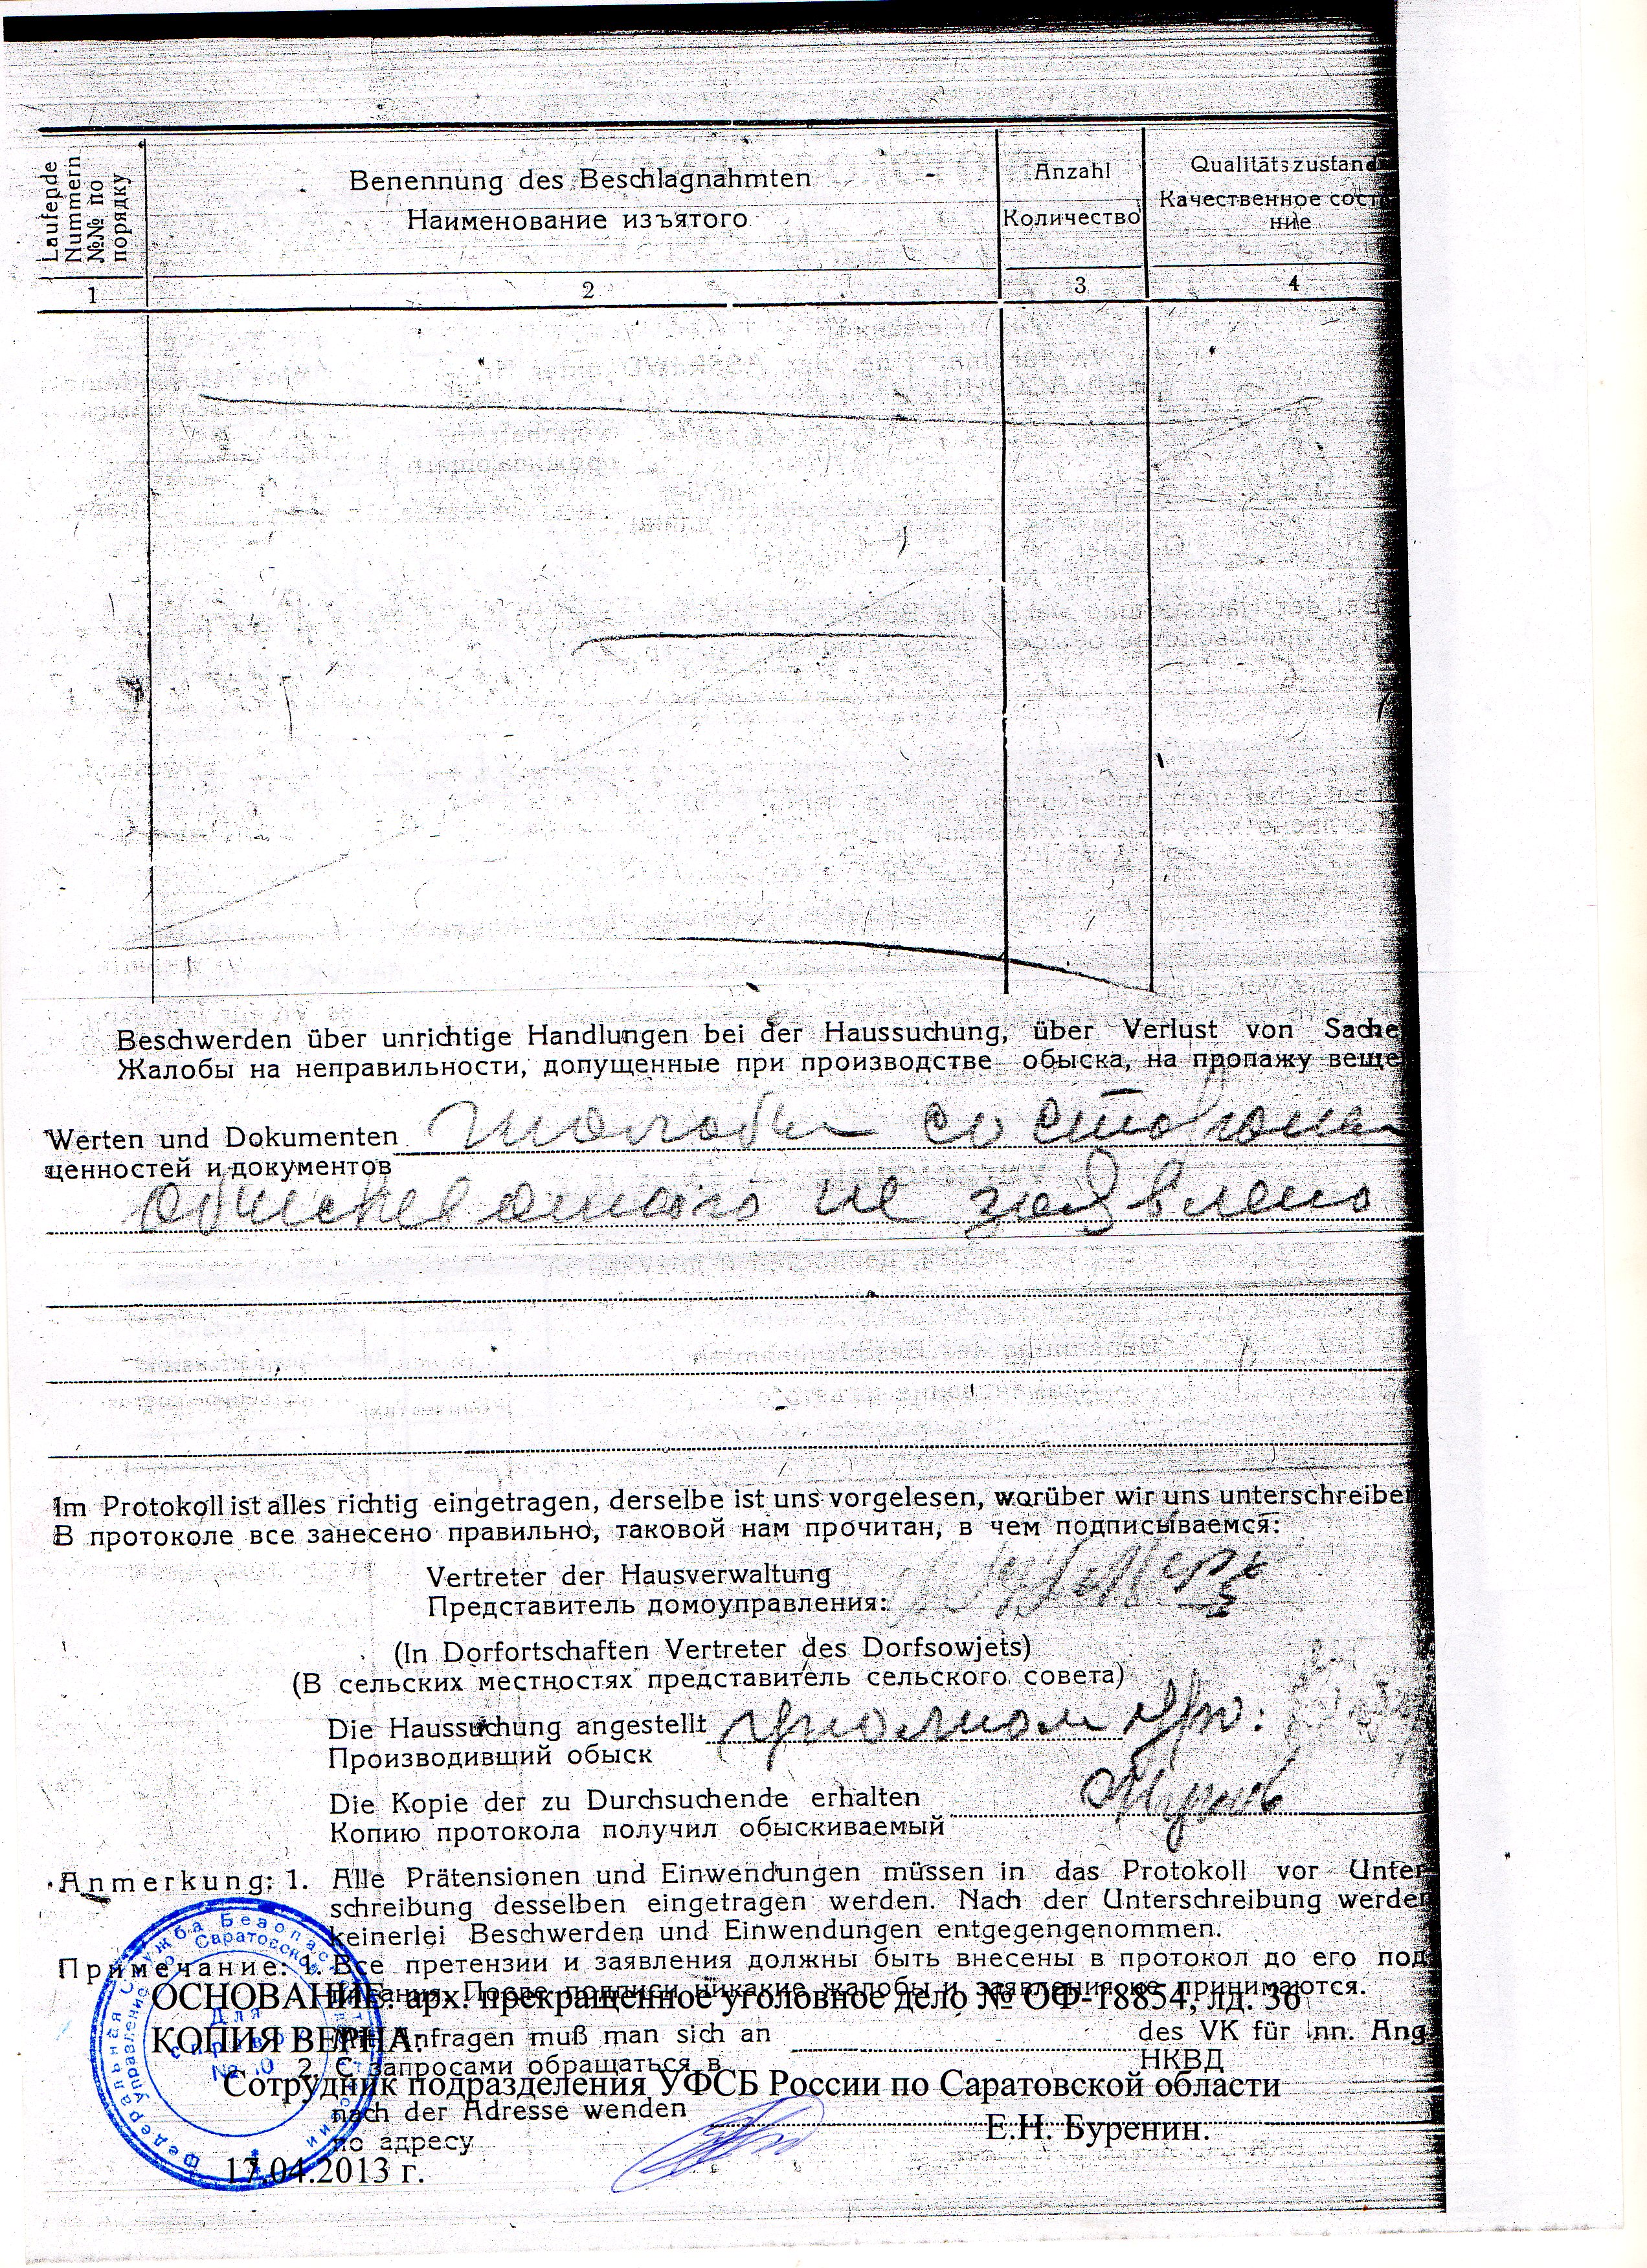 Laufende
Nummern
№№ по
порядку
Benennung des Beschlagnahmten
Наименование изъятого
Anzahl
Количество
Qualitätszustand
Качественное состо
ние
1
2
3
4
Beschwerden über unrichtige Handlungen bei der Haussuchung, über Verlust von Sache
Жалобы на неправильности, допущенные при производстве обыска, на пропажу веще
Werten und Dokumenten
жалобы со стороны
ценностей и документов
обыскиваемого не заявлено
Im Protokoll ist alles richtig eingetragen, derselbe ist uns vorgelesen, worüber wir uns unterschreiben
В протоколе все занесено правильно, таковой нам прочитан, в чем подписываемся:
Vertreter der Hausverwaltung
Представитель домоуправления:
(In Dorfortschaften Vertreter des Dorfsowjets)
(В сельских местностях представитель сельского совета)
Die Haussuchung angestellt
Производивший обыск
Die Kopie der zu Durchsuchende erhalten
Копию протокола получил обыскиваемый
Anmerkung: 1. Alle Prätensionen und Einwendungen müssen in das Protokoll vor Unter
schreibung desselben eingetragen werden. Nach der Unterschreibung werden
keinerlei Beschwerden und Einwendungen entgegengenommen.
Примечание: 1. Все претензии и заявления должны быть внесены в протокол до его под
писания. После подписи никакие жалобы и заявления не принимаются.
ОСНОВАНИЕ: арх. прекращенное уголовное дело № ОФ-18854, лд. 36
Anfragen muß man sich an des VK für Inn. Ang.
КОПИЯ ВЕРНА:
2. С запросами обращаться в НКВД
Сотрудник подразделения УФСБ России по Саратовской области
nach der Adresse wenden
Е.Н. Буренин.
по адресу
17.04.2013 г.
Федеральная Служба Безопасности
Управление по Саратовской
Для
справок
№ 10